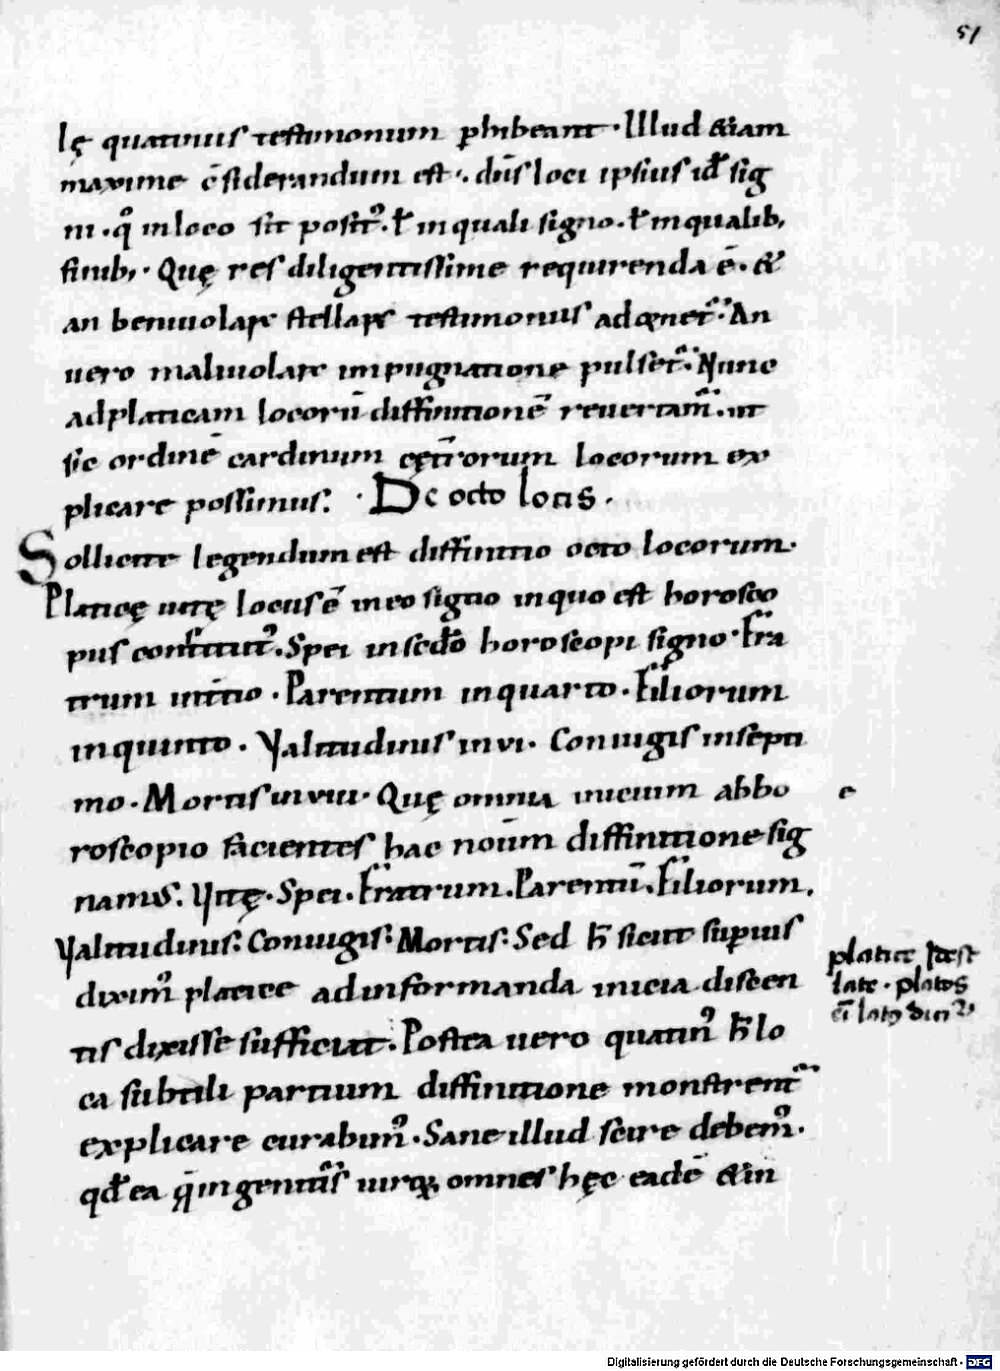 51
lę quatinus testimonium phibeant · Illud &iam
maxime c̄siderandum est · dn̄s loci ipsius id̄ sig
ni · q̊ in loco sit posit᷒ · ł in quali signo · ł in qualib;
finib; · Quę res diligentissime requirenda ē · &
an beniuolarꝝ stellarꝝ testimoniis adornet᷑ · An
uero maliuolarꝝ impugnatione pulset᷑ · Nunc
ad platicam locorū diffinitionē reuertam᷑ · ut
sic ordinē cardinum cęt̄rorum locorum ex
plicare possimus · De octo locis ·
Sollicite legendum est diffinitio octo locorum ·
Platicę uitę locus ē in eo signo in quo est horosco
pus constitut᷒ · Spei in scd̄o horoscopi signo · Fra
trum in t̄tio · Parentum in quarto · Filiorum
in quinto · Valitudinis in vi · Coniugis in septi
mo · Mortis in viii · Quę omnia inicium abho
roscopio facientes hac noīm diffinitione sig
namus · Vitę · Spei · Fratrum · Parentū · Filiorum ·
Valitudinis · Coniugis · Mortis · Sed h̄ sicut sup̄ius
dixim᷒ platice ad informanda inicia discen
tis dixisse sufficiat · Postea uero quatin᷒ h̄ lo
ca subtili partium diffinitione monstrent᷑
explicare curabim᷒ · Sane illud scire debem᷒ ·
qd̄ ea q̄ in genit̄is uirorꝝ omnes hęc eadē &in
e
platice idest
late · platos
eī lat᷒ dicit᷑
Digitalisierung gefördert durch die Deutsche Forschungsgemeinschaft - DFG